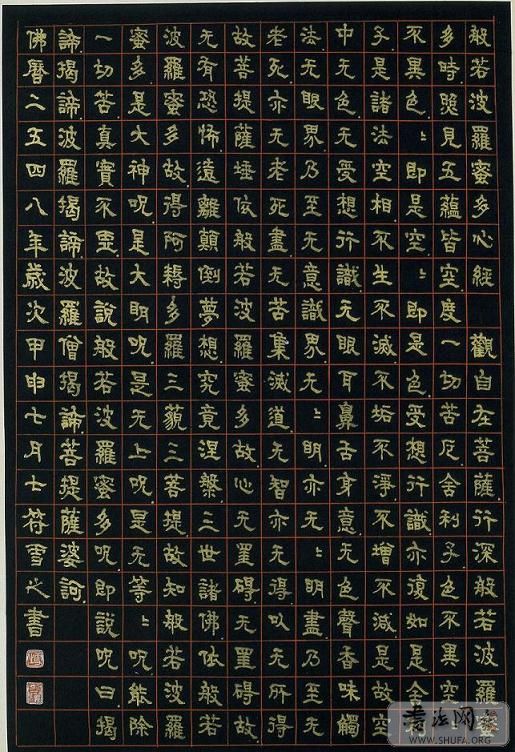 般若波羅蜜多心經 觀自在菩薩行深般若波羅蜜
多時照見五蘊皆空度一切苦厄舍利子色不異空
不異色〻即是空〻即是色受想行識亦復如是舍利
子是諸法空相不生不滅不垢不淨不增不減是故空
中无色无受想行識无眼耳鼻舌身意无色聲香味觸
法无眼界乃至无意識界无〻明亦无〻明盡乃至无
老死亦无老死盡无苦集滅道无智亦无得以无所得
故菩提薩埵依般若波羅蜜多故心无罣礙无罣礙故
无有恐怖遠離顛倒夢想究竟涅槃三世諸佛依般若
波羅蜜多故得阿耨多羅三藐三菩提故知般若波羅
蜜多是大神呪是大明呪是无上呪是无等〻呪能除
一切苦真實不虛故說般若波羅蜜多呪即說呪曰揭
諦揭諦波羅揭諦波羅僧揭諦菩提薩婆訶
佛曆二五四八年歲次甲申七月七符雪之書
書法网
WWW.SHUFA.ORG